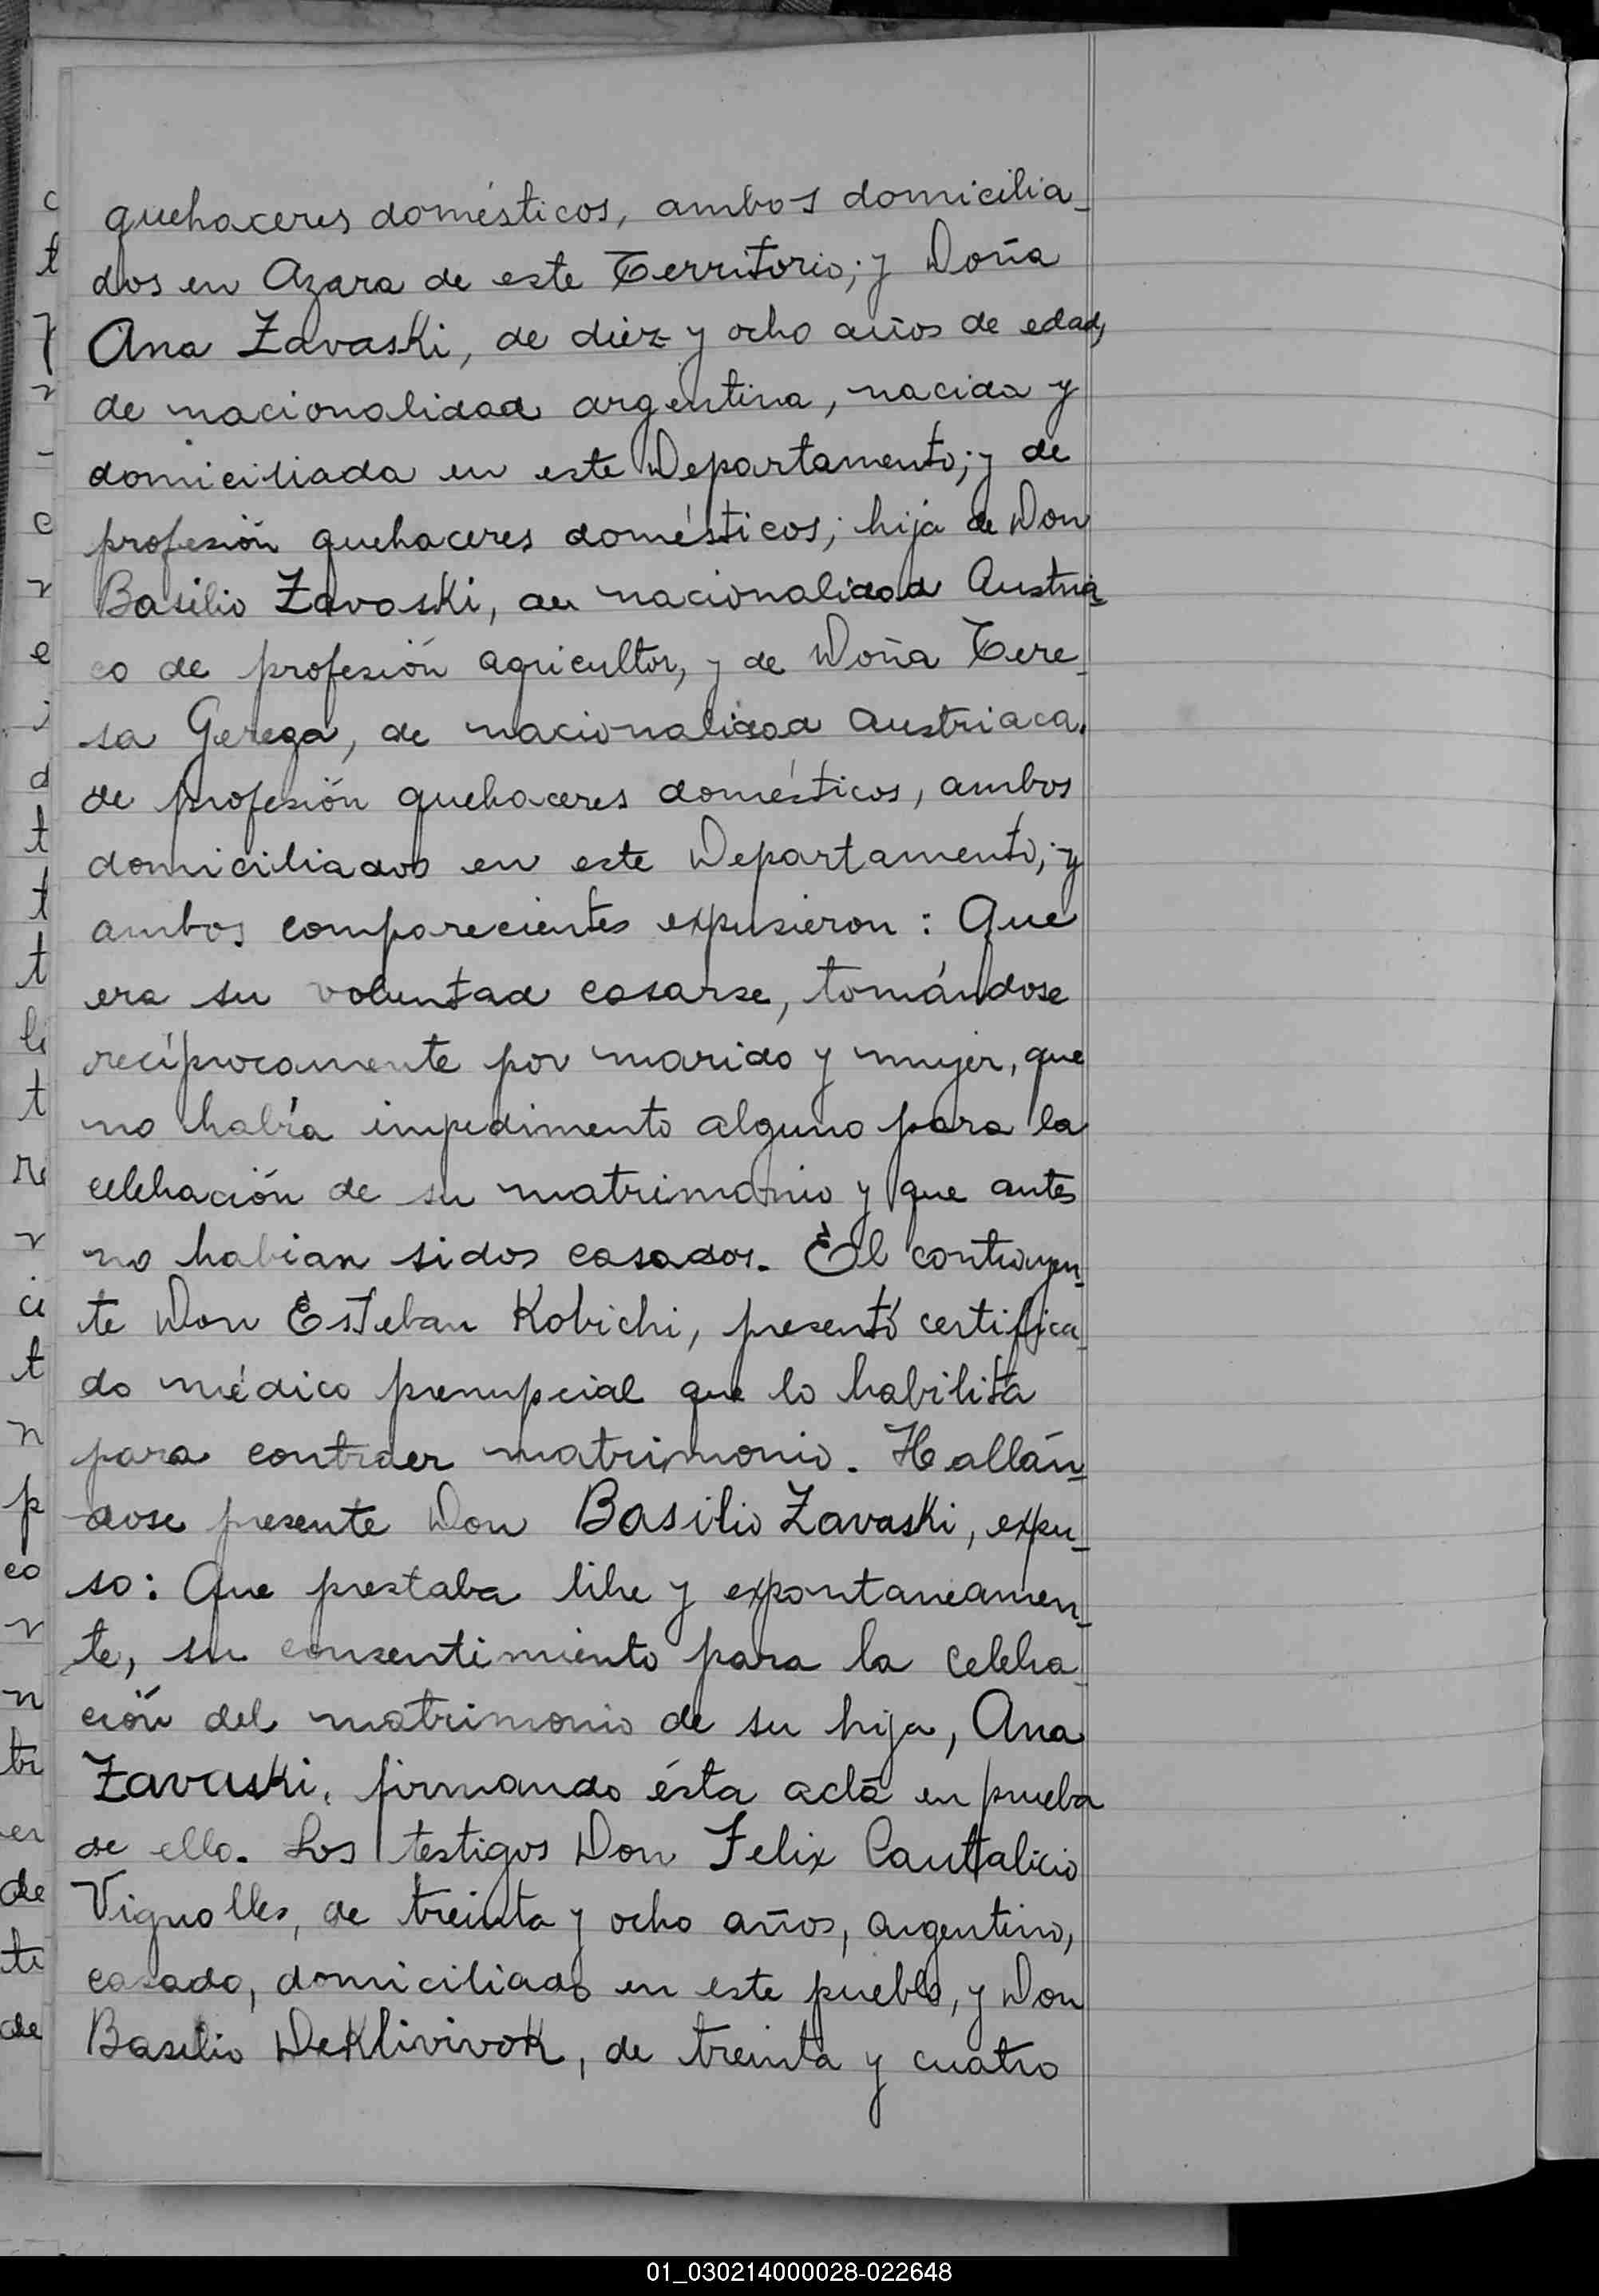 quehaceres domésticos, ambos domicilia-
dos en Azara de este Territorio; y Doña
Ana Zavaski, de diez y ocho años de edad,
de nacionalidad argentina, nacida y
domiciliada en este Departamento; y de
profesión quehaceres domésticos; hija de Don
Basilio Zavaski, de nacionalidad Austria-
co de profesión agricultor, y de Doña Tere-
sa Gerega, de nacionalidad austriaca.
de profesión quehaceres domésticos, ambos
domiciliados en este Departamento; y
ambos comparecientes expusieron: Que
era su voluntad casarse, tomándose
recíprocamente por marido y mujer, que
no había impedimento alguno para la
celebración de su matrimonio y que antes
no habian sidos casados. El contrayen-
te Don Esteban Kobichi, presentó certifica-
do médico prenupcial que lo habilita
para contraer matrimonio. Hallán-
dose presente Don Basilio Zavaski, expu-
so: Que prestaba libre y expontaneamen-
te, su consentimiento para la celebra-
ción del matrimonio de su hija, Ana
Zavaski, firmando ésta acta en prueba
de ello. Los testigos Don Felix Cantalicio
Vignolles, de treinta y ocho años, argentino,
casado, domiciliado en este pueblo, y Don
Basilio Deklivivok, de treinta y cuatro
01_030214000028-022648